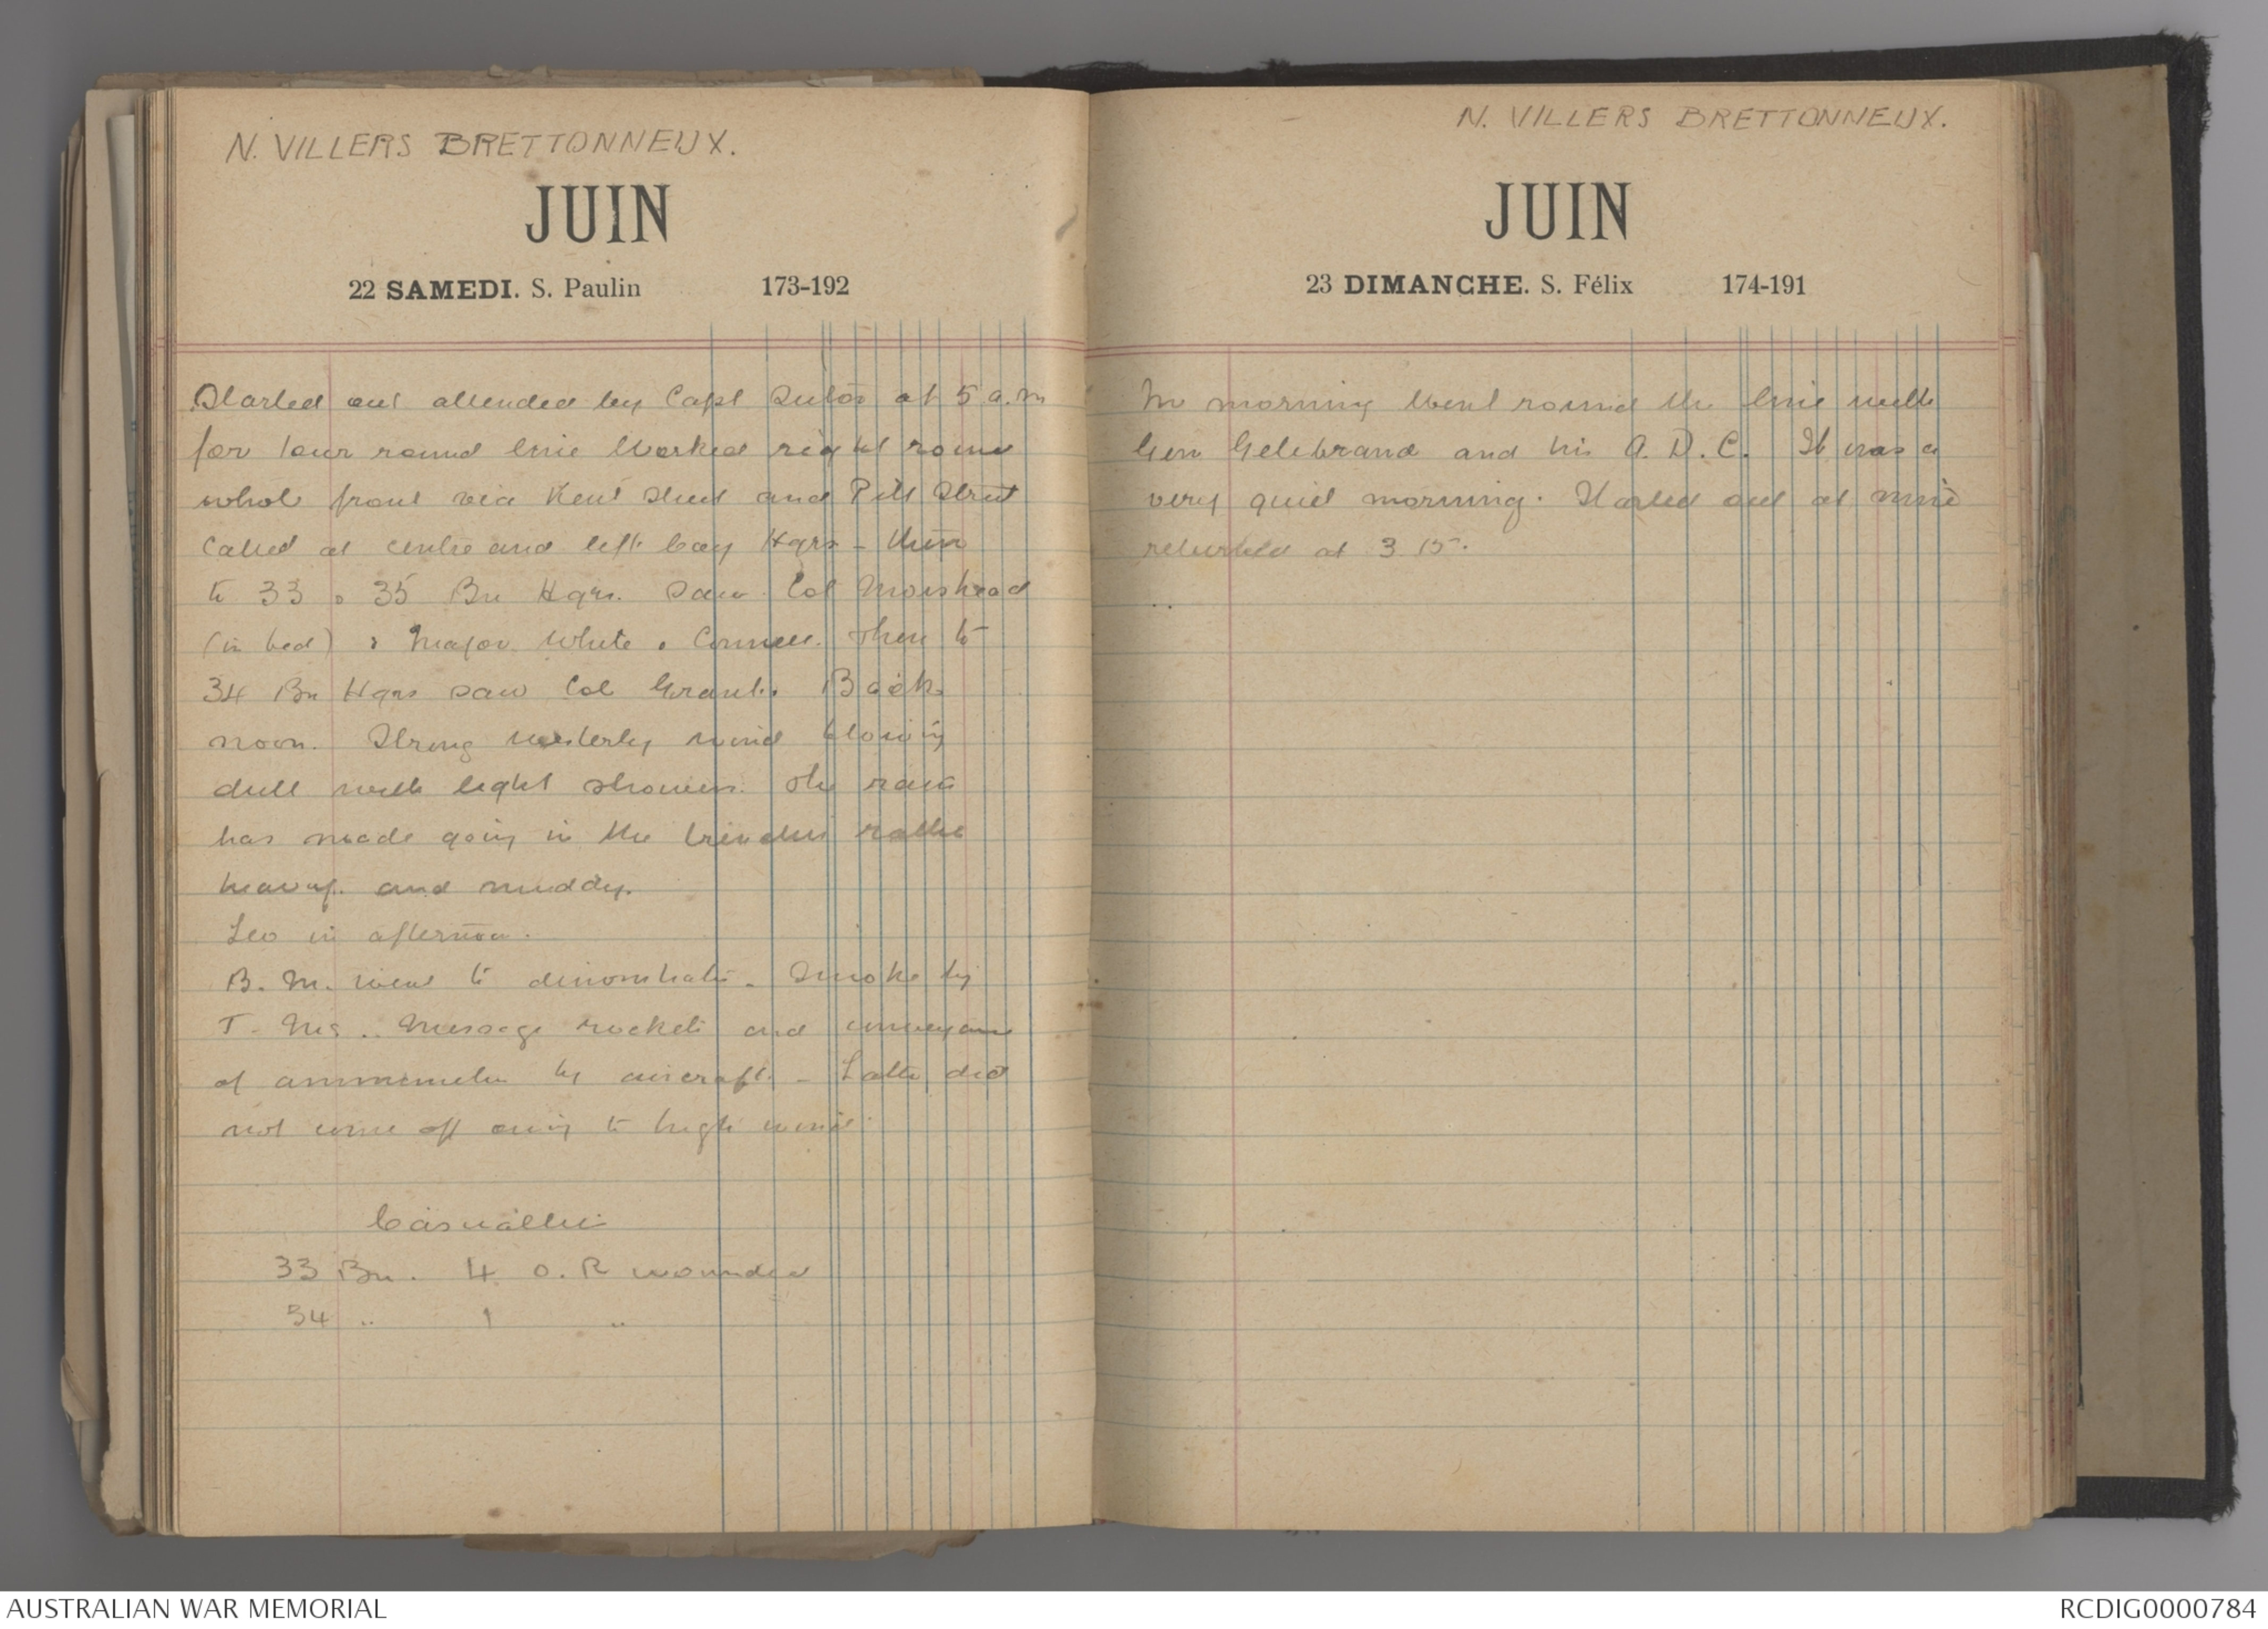 N. VILLERS BRETTONNEUX.
JUIN
22 SAMEDI. S. Paulin 173-192
Started out attended by Capt at 5 a.m
for tour round line Worked right round
whole front via Kent Street and Pitt Street
Called at centre and left Coy Hqrs - then
to 33 & 35 Bn Hqrs. Saw Col Morshead
(in bed) & Major White & Connell. Then to
34 Bn Hqrs saw Col Grant. Back
noon. Strong westerly wind blowing
dull with light showers. The rain
has made going in the trenches rather
heavy and muddy.
Leo in afternoon.
B. M. went to demonstration - Smoke by
T. Ms .. Message rockets and conveyance
of ammunition by aircraft. - Latter did
not come off owing to high wind.
Casualties
33 Bn. 4 O.R wounded
34 .. 1 ..
N. VILLERS BRETTONNEUX.
JUIN
23 DIMANCHE. S. Félix 174-191
In morning Went round the line with
Gen Gelibrand and his A.D.C. It was a
very quiet morning. Started out at nine
returned at 3.15.
AUSTRALIAN WAR MEMORIAL
RCDIG0000784